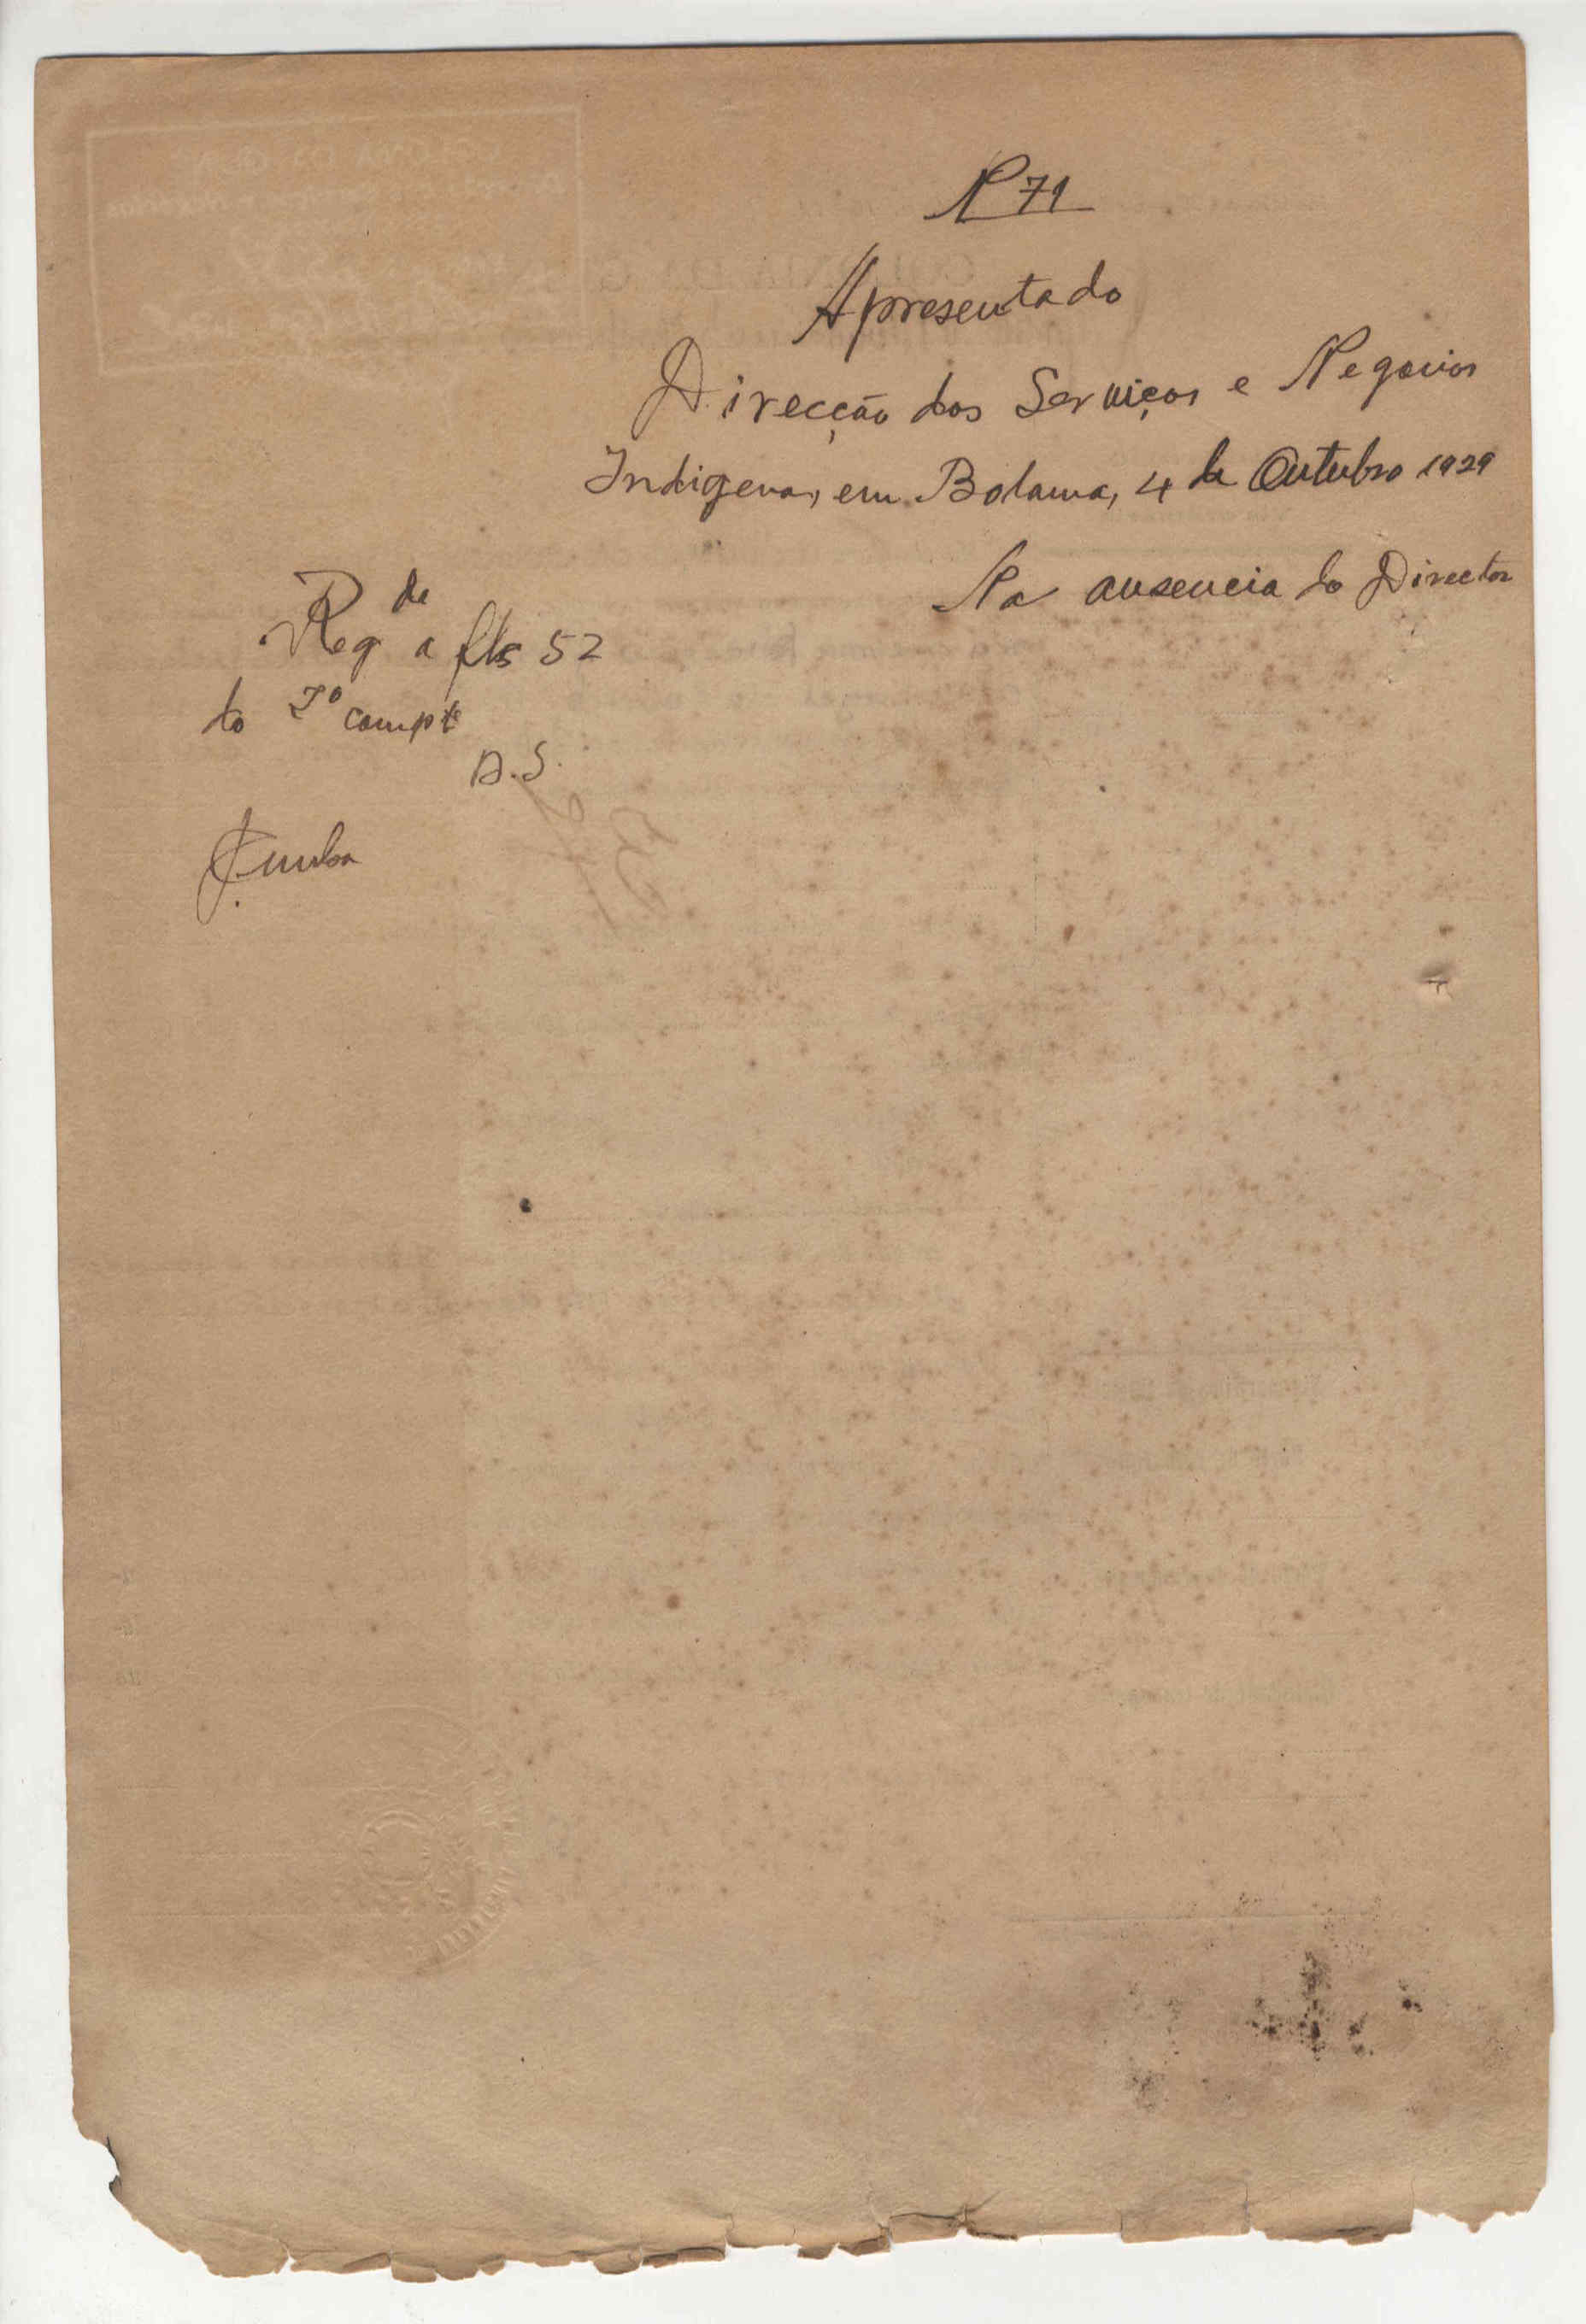 Nº 71
Apresentado
Direcção dos Serviços e Negocios
Indigenas, em Bolama, 4 de Outubro 1929
Na ausencia do Director
Reg de a fls 52
do compte
D.S.